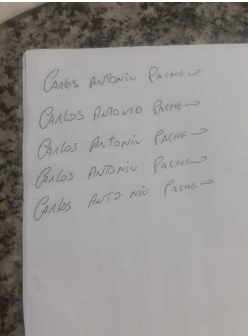 Carlos Antonio Pacheco
Carlos Antonio Pacheco
Carlos Antonio Pacheco
Carlos Antonio Pacheco
Carlos Antonio Pacheco